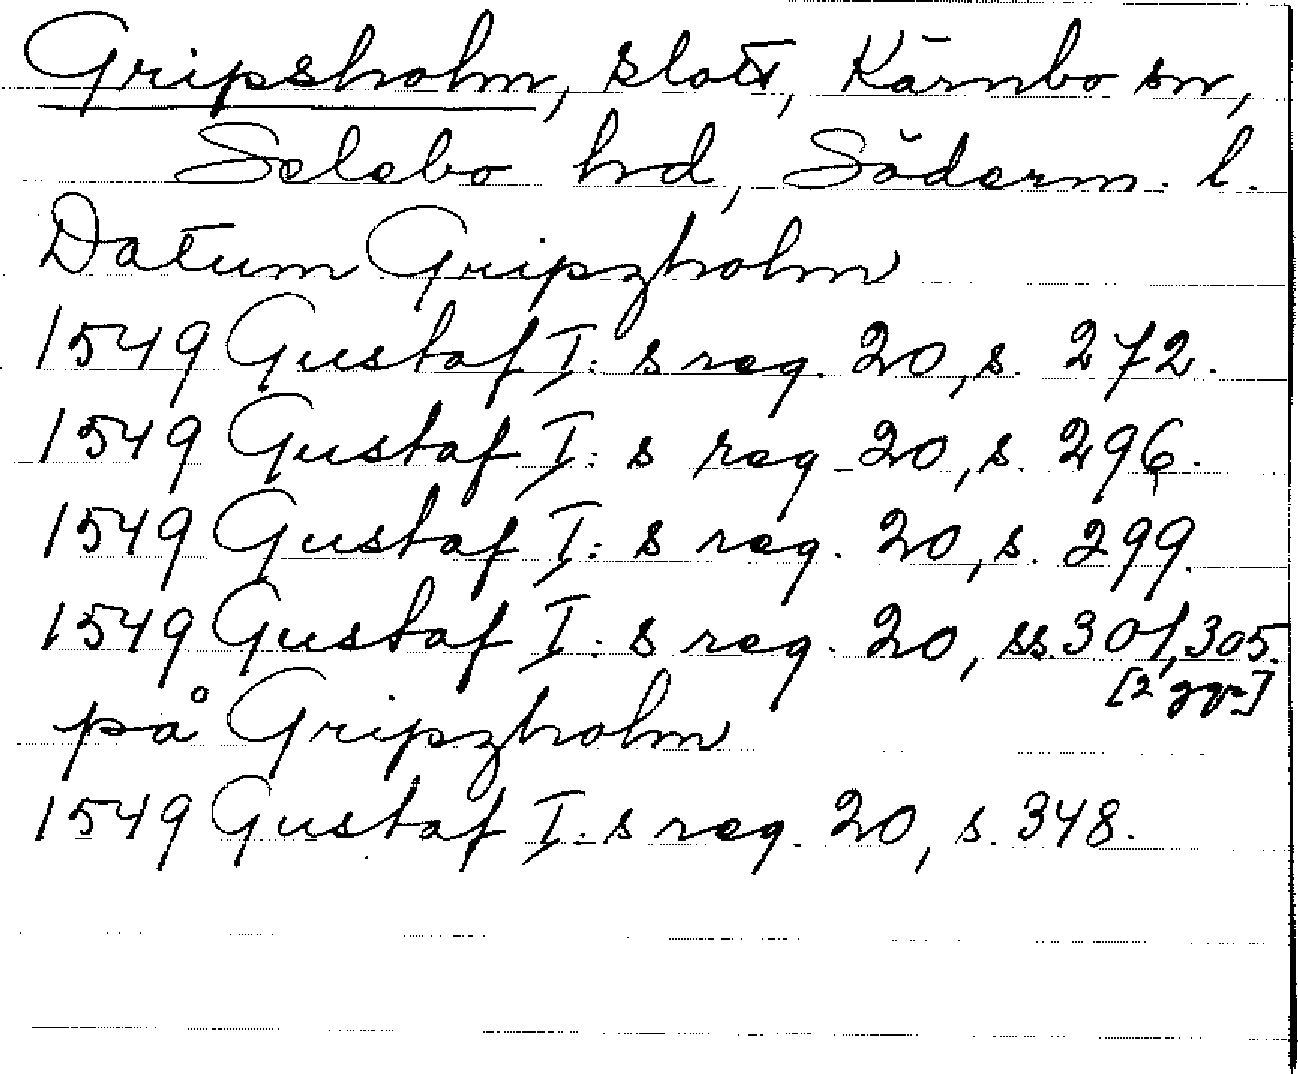 Gripsholm, slott, Kärnbo sn,
Selebo hd, Söderm. l.
Datum Gripzholm
1549 Gustaf I:s reg. 20, s. 272.
1549 Gustaf I:s reg. 20, s. 296.
1549 Gustaf I:s reg. 20, s. 299.
1549 Gustaf I:s reg. 20, ss. 301, 305.
[2 ggr]
på Gripzholm
1549 Gustaf I:s reg. 20, s. 348.